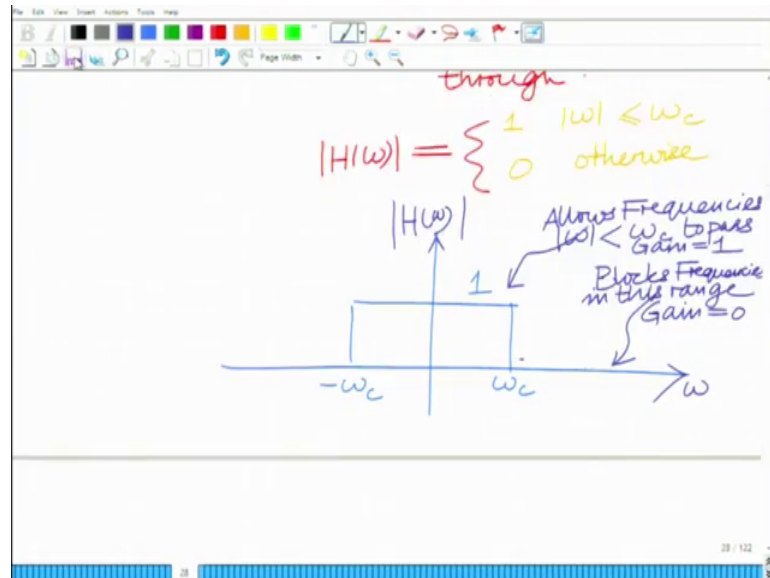 File Edit View Insert Actions Tools Help
B I
Page Width
through.
|H(ω)| = { 1 |ω| ≤ ωc
0 otherwise
|H(ω)|
Allows Frequencies
|ω| < ωc to pass
Gain = 1
1
Blocks Frequencies
in this range
Gain = 0
-ωc ωc ω
28 / 122
28